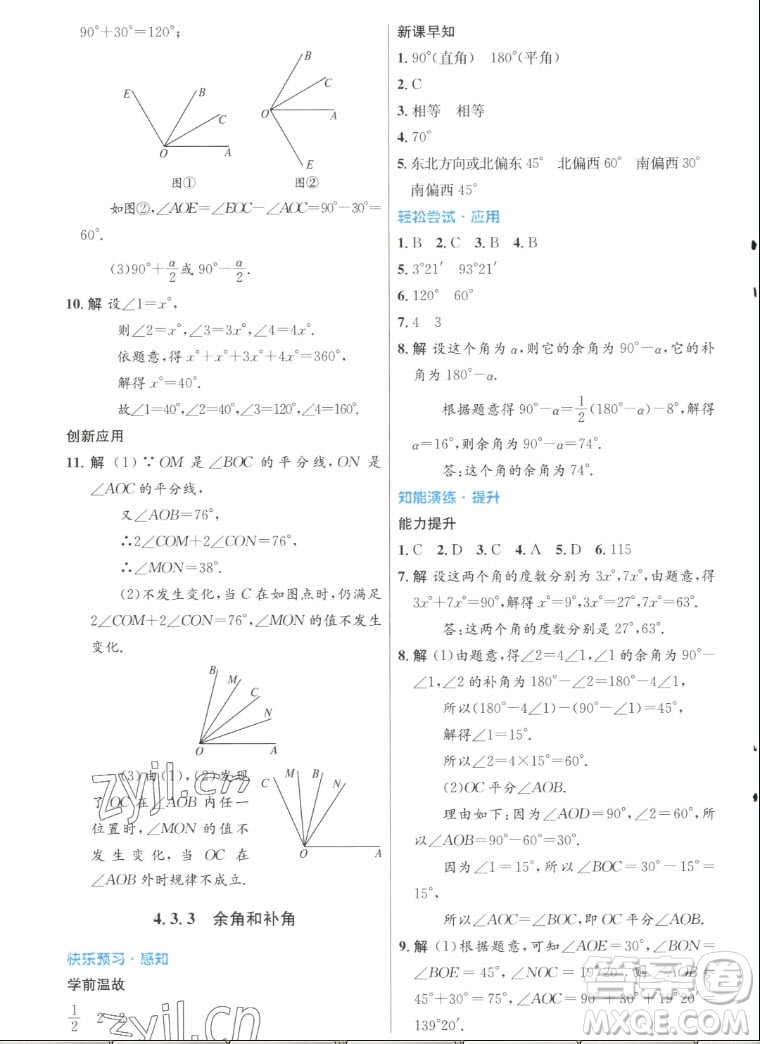 90°+30°=120°;
E
B
C
O
A
B
C
O
A
E
图①
图②
如图②,∠AOE=∠EOC-∠AOC=90°-30°=
60°.
(3)90°+α/2或90°-α/2.
10. 解 设∠1=x°,
则∠2=x°,∠3=3x°,∠4=4x°.
依题意,得x°+x°+3x°+4x°=360°,
解得x°=40°.
故∠1=40°,∠2=40°,∠3=120°,∠4=160°.
创新应用
11. 解 (1)∵OM 是∠BOC的平分线,ON 是
∠AOC的平分线,
又∠AOB=76°,
∴2∠COM+2∠CON=76°.
∴∠MON=38°.
(2)不发生变化,当C在如图点时,仍满足
2∠COM+2∠CON=76°,∠MON的值不发生
变化.
B
M
C
N
O
A
(3)由(1),(2)发现
了OC在∠AOB内任一
位置时,∠MON的值不
发生变化,当 OC 在
∠AOB外时规律不成立.
C
M
B
N
O
A
4.3.3 余角和补角
快乐预习·感知
学前温故
1/2 2 2
新课早知
1. 90°(直角) 180°(平角)
2. C
3. 相等 相等
4. 70°
5. 东北方向或北偏东45° 北偏西60° 南偏西30°
南偏西45°
轻松尝试·应用
1. B 2. C 3. B 4. B
5. 3°21′ 93°21′
6. 120° 60°
7. 4 3
8. 解 设这个角为α,则它的余角为90°-α,它的补
角为180°-α.
根据题意得90°-α=1/2(180°-α)-8°,解得
α=16°,则余角为90°-α=74°.
答:这个角的余角为74°.
知能演练·提升
能力提升
1. C 2. D 3. C 4. A 5. D 6. 115
7. 解 设这两个角的度数分别为3x°,7x°,由题意,得
3x°+7x°=90°,解得x°=9°,3x°=27°,7x°=63°.
答:这两个角的度数分别为27°,63°.
8. 解 (1)由题意,得∠2=4∠1,∠1的余角为90°-
∠1,∠2的补角为180°-∠2=180°-4∠1,
所以(180°-4∠1)-(90°-∠1)=45°.
解得∠1=15°.
所以∠2=4×15°=60°.
(2)OC平分∠AOB.
理由如下:因为∠AOD=90°,∠2=60°,所
以∠AOB=90°-60°=30°.
因为∠1=15°,所以∠BOC=30°-15°=
15°.
所以∠AOC=∠BOC,即OC平分∠AOB.
9. 解 (1)根据题意,可知∠AOE=30°,∠BON=
∠BOE=45°,∠NOC=19°20′.所以∠AOB=
45°+30°+45°=∠NOC+∠BON+19°20′=
139°20′.